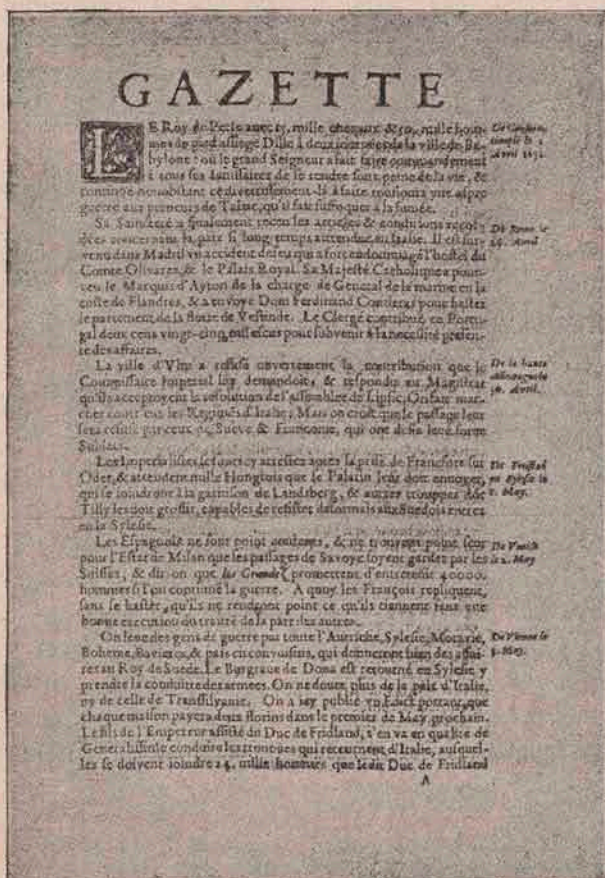 GAZETTE
LE Roy de Perse avec 15. mille chevaux & 50. mille hommes
de pied assiege Dille à deux journées de la ville de Babylone:
où le grand Seigneur a fait faire commandement
à tous ses Janissaires de se rendre sous peine de la vie, &
continuë nonobstant ce divertissement-là à faire tousjours une aspre
guerre aux preneurs de Tabac, qu'il fait suffoquer à la fumée.
De Constantinople le 2 Avril 1631.
Sa Sainteté a
& conditions
la paix si long temps attenduë en Italie. Il est survenu
dans Madrid un accident de feu qui a fort endommagé l'hostel du
Comte Olivares, & le Palais Royal. Sa Majesté Catholique a pourveu
le Marquis d'Ayton de la charge de General de la marine en la
coste de Flandres, & a envoyé Dom Ferdinand pour haster
le partement de la flotte de Le Clergé contribuë en Portugal
deux cens vingt-cinq mil escus pour subvenir à la necessité presente
des affaires.
De Rome le 26. Avril
La ville d'Vlm a refusé ouvertement la contribution que le
Commissaire Imperial luy demandoit, & respondu au Magistrat
qu'ils acceptoyent la resolution de l'assemblée de Lipsic, On fait marcher
contr'eux les Regimés d'Italie; Mais on croit que le passage leur
sera refusé par ceux de Sueve & Franconie, qui ont
De la haute Allemagne
Avril.
Les Imperialistes se
après la prise de Francfort sur
Oder, & attendent mille Hongrois que le Palatin doit envoyer,
qui se joindront à la garnison de Landsberg, & autres trouppes dőt
Tilly les doit grossir, capables de resister desormais aux Suedois entrez
en la Sylesie.
en Sylesie le
1. May.
Les Espagnols ne sont point contents, & ne trouvent point
pour l'Estat de Milan que les passages de Savoye soyent gardez par les
Suisses, & dit-on que los Grandez promettent d'entretenir 40000.
hommes si l'on continuë la guerre. A quoy les François repliquent,
sans se haster, qu'ils ne rendront point ce qu'ils tiennent sans une
bonne execution du traité de la part des autres.
De Venise le 2. May
On leve des gens de guerre par toute l'Autriche, Sylesie, Moravie,
Boheme, Baviere, & païs circonvoisins, qui donneront bien des affaires
au Roy de Suede. Le Burgrave de Dona est retourné en Sylesie y
prendre la conduitte des armees. On ne doute plus de la paix d'Italie,
ny de celle de Transilvanie. On a icy publié un Edict portant, que
chaque maison payera deux florins dans le premier de May prochain.
Le fils de l'Empereur assisté du Duc de Fridland, s'en va en qualité de
Generalissime conduire les trouppes qui d'Italie, ausquelles
se doivent joindre 24. mille hommes que ledit Duc de Fridland
De Vienne le
May.
A